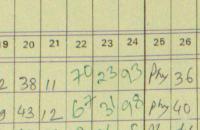 19 20 21 22 23 24 25 26
2 38 11 70 23 93 Phy 36
9 43 12 67 31 98 Phy 40